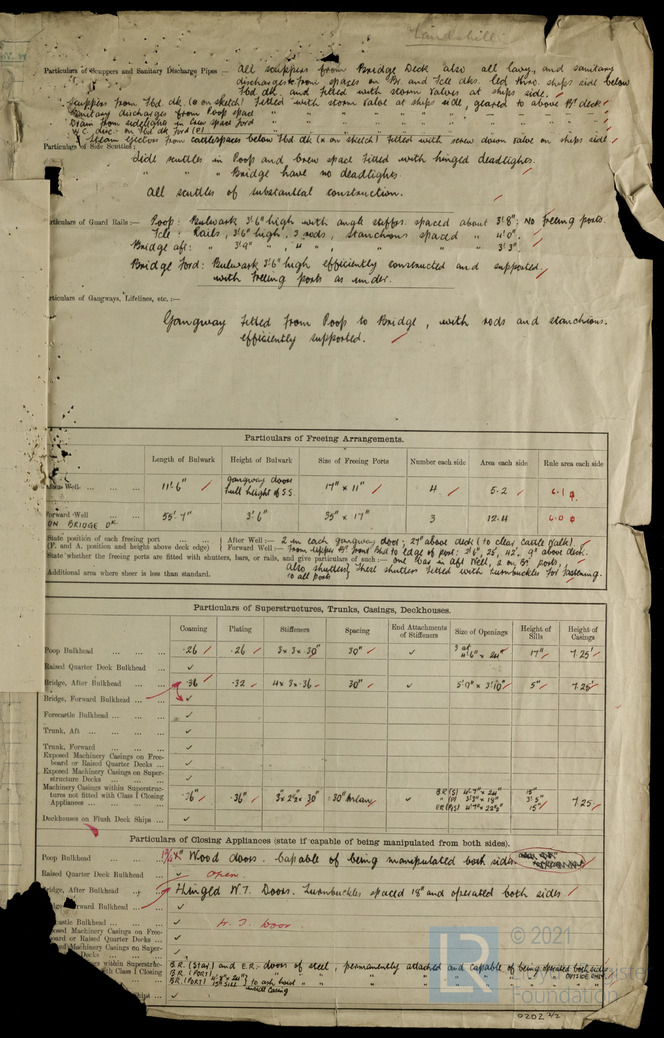 Particulars of Scuppers and Sanitary Discharge Pipes All scuppers from Bridge Deck also all lavy, and sanitary
discharges from spaces on Br. and Fcle dks. led thro. ships side below
Fbd dk. and fitted with storm valves at ships side.
Scuppers from Fbd dk. (o on sketch) Fitted with storm valve at ships side, geared to above Bn deck
Sanitary discharges from Poop space " " " " " " " "
Drain from sidelights in Crew space ford " " " " " " "
W.C. disc. on Fbd dk Ford (P) " " " " " " "
Steam ejection from cattlespaces below Fbd dk (x on sketch) fitted with screw down valve on ships side.
Particulars of Side Scuttles:
Side scuttles in Poop and Crew space fitted with hinged deadlights.
" " " Bridge have no deadlights.
All scuttles of substantial construction.
Particulars of Guard Rails:— Poop: Bulwark 3'6" high with angle stiffrs. spaced about 3'8": No freeing ports.
Fcle: Rails, 3'6" high, 3 rods, Stanchions spaced " 4'0".
Bridge aft: " 3'9" " , 4 " , " " " 3'3"
Bridge Ford: Bulwark 3'6" high efficiently constructed and supported,
with freeing ports as under.
Particulars of Gangways, Lifelines, etc.:—
Gangway fitted from Poop to Bridge, with rods and stanchions.
efficiently supported.
Particulars of Freeing Arrangements.
Length of Bulwark Height of Bulwark Size of Freeing Ports Number each side Area each side Rule area each side
After Well 11'.6" gangway doors full height of S.S. 17" x 11" 4 5.2 6.1
Forward Well 55'.7" 3'.6" 35" x 17" 3 12.4 6.0
ON BRIDGE DK
State position of each freeing port (F. and A. position and height above deck edge)
After Well:— 2 in each gangway door; 27" above deck (to clear Cattle Walk).
Forward Well:— From upper Bn front Bhd to edge of port: 3'.6", 25', 42'. 9" above deck.
State whether the freeing ports are fitted with shutters, bars, or rails, and give particulars of each:— one bar in aft Well, 2 on Bn ports,
Also shutters to all ports } These shutters fitted with turnbuckles for fastening.
Additional area where sheer is less than standard.
Particulars of Superstructures, Trunks, Casings, Deckhouses.
Coaming Plating Stiffeners Spacing End Attachments of Stiffeners Size of Openings Height of Sills Height of Casings
Poop Bulkhead .26 .26 3 x 3 x 30 30" ✓ 3 at 4'6" x 24" 17" 7.25'
Raised Quarter Deck Bulkhead ✓
Bridge, After Bulkhead .36 .32 4 x 3 x .36 30" ✓ 5'.9" x 3'10" 5" 7.25'
Bridge, Forward Bulkhead ✓
Forecastle Bulkhead ✓
Trunk, Aft ✓
Trunk, Forward ✓
Exposed Machinery Casings on Freeboard or Raised Quarter Decks ✓
Exposed Machinery Casings on Superstructure Decks ✓
Machinery Casings within Superstructures not fitted with Class I Closing Appliances .36" .36" 3" 2½ x 30" 30" ✓ 7.25
Deckhouses on Flush Deck Ships ✓
Particulars of Closing Appliances (state if capable of being manipulated from both sides).
Poop Bulkhead Wood doors. Capable of being manipulated both sides.
Raised Quarter Deck Bulkhead ✓ Open
Bridge, After Bulkhead Hinged W.T. Doors. Turnbuckles spaced 18" and operated both sides
Bridge, Forward Bulkhead ✓
Forecastle Bulkhead ✓ W.T. Door
Exposed Machinery Casings on Freeboard or Raised Quarter Decks ✓
Exposed Machinery Casings on Superstructure Decks ✓
within Superstructures with Class I Closing B.R. (Star) and E.R. doors of steel, permanently attached and capable of being operated both sides
B.R. (PORT) " " " " " " OUTSIDE ONLY
BR. (PORT) } to ash hoist inside casing
Ships ✓
© 2021
LR
Foundation
0202 2/2